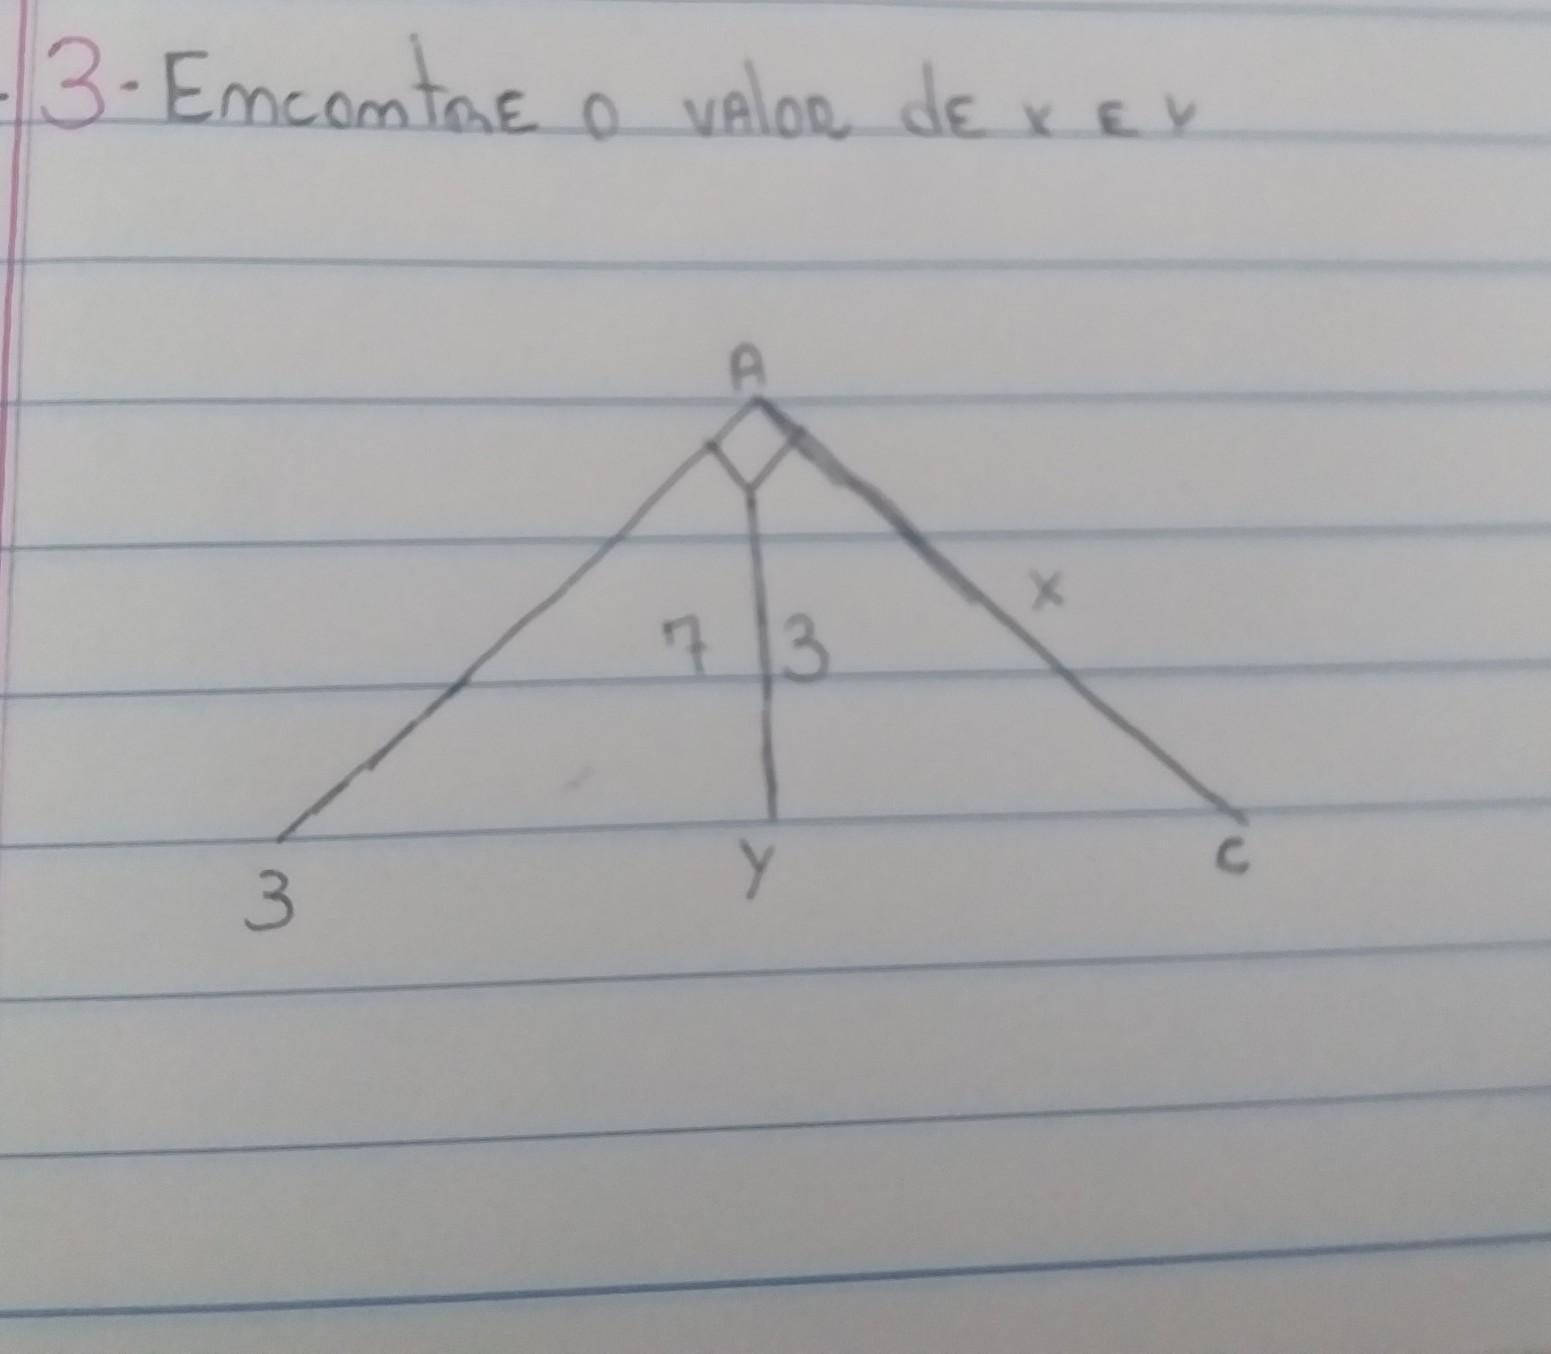 3- Emcomtre o valor de x e y
A
7 3 x
3 y c